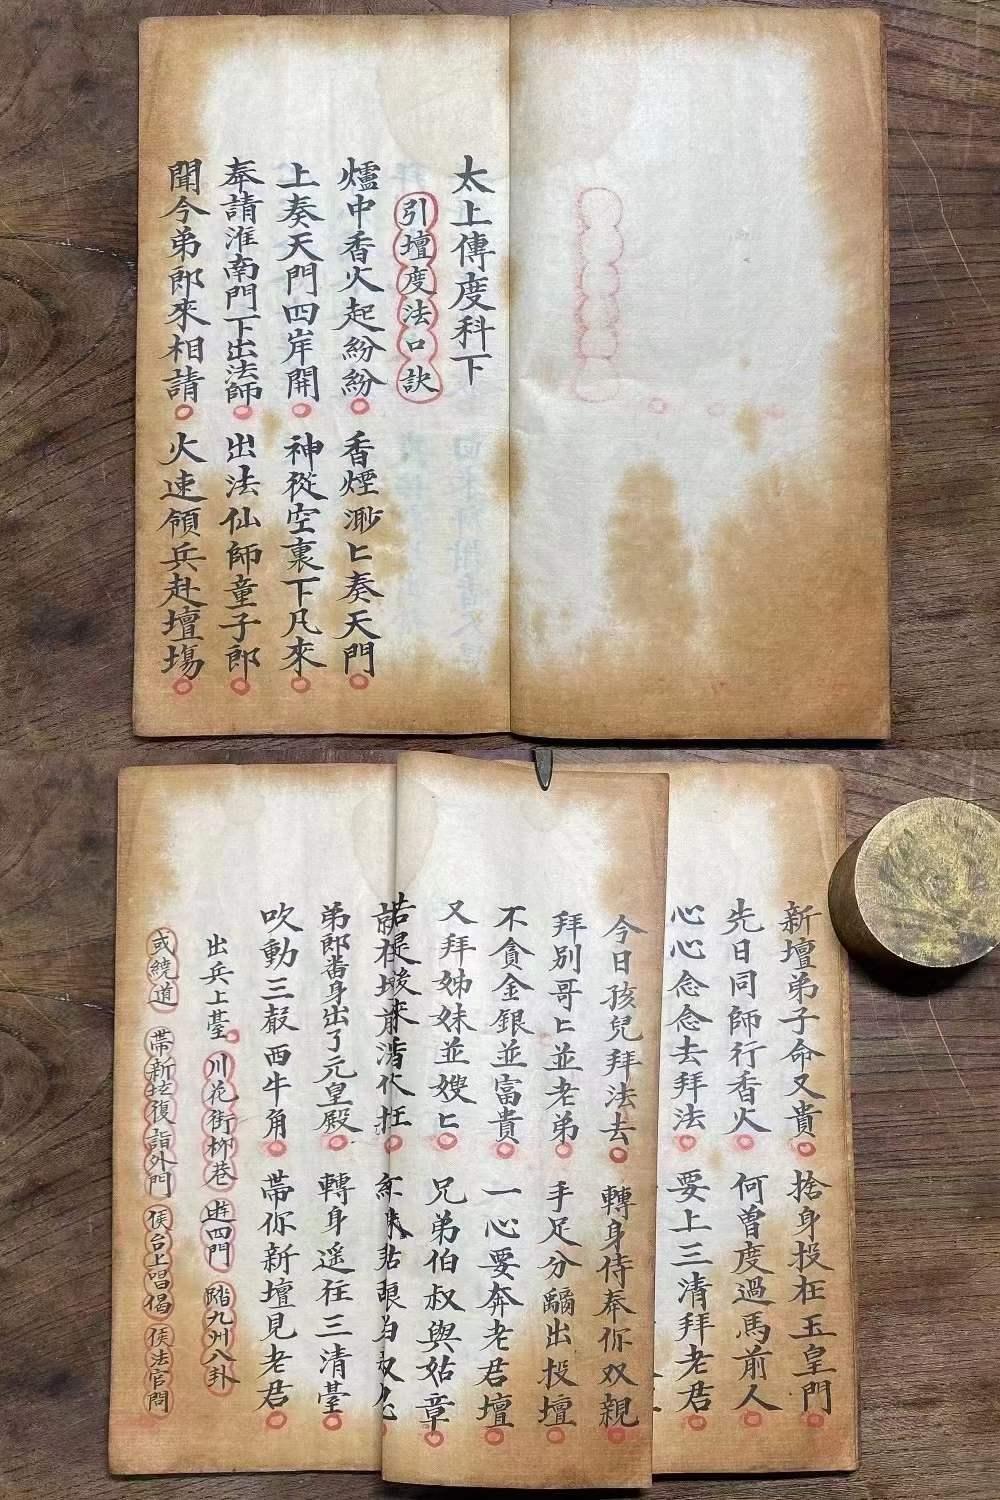 太上傳度科下
引壇度法口訣
爐中香火起紛紛 香煙渺匕奏天門
上奏天門四岸開 神從空裏下凡來
奉請淮南門下出法師 出法仙師童子郎
聞今弟郎來相請 火速領兵赴壇場
新壇弟子命又貴 捨身投在玉皇門
先日同師行香火 何曾度過馬前人
心心念念去拜法 要上三清拜老君
今日孩兒拜法去 轉身侍奉你双親
拜別哥匕並老弟 手足分 出投壇
不貪金銀並富貴 一心要奔老君壇
又拜姊妹並嫂匕 兄弟伯叔與姑章
弟郎番身出了元皇殿 轉身遥往三清臺
吹動三聲西牛角 帶你新壇見老君
出兵上臺 川花街柳巷 遊四門 踏九州八卦
或繞道 帶新 復詣外門 侯台上唱偈 侯法官問